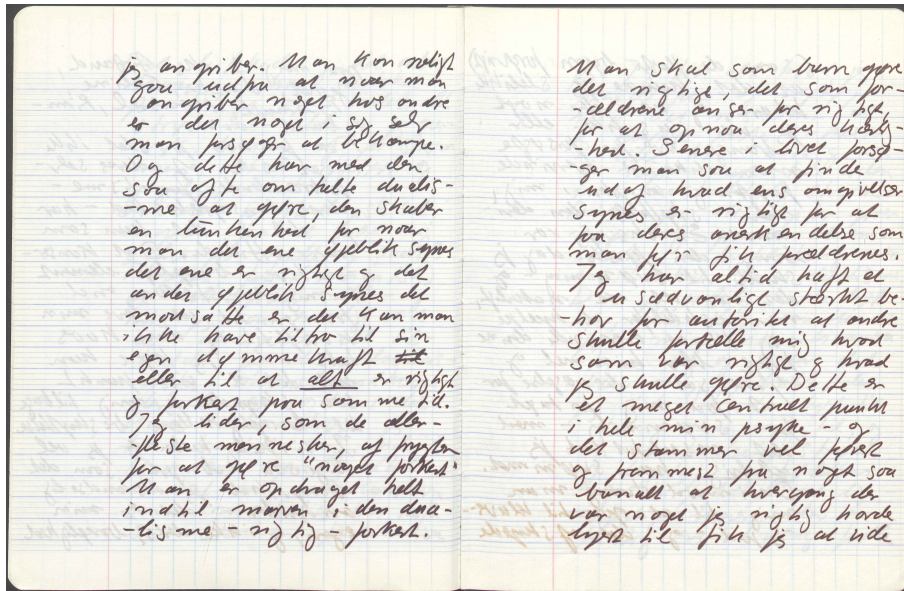 jeg angriber. Man kan roligt
gaa udfra at naar man
angriber noget hos andre
er det noget i sig selv
man forsøger at bekæmpe.
Og dette har med den
saa ofte omtalte dualis-
-me at gøre, den skaber
en for naar
man det ene øjeblik synes
det ene er rigtigt og det
andet øjeblik synes det
modsatte er det kan man
ikke have tiltro til sin
egen dømmekraft
eller til at alt er rigtigt
og forkert paa samme tid.
Jeg lider, som de aller-
-fleste mennesker, af frygten
for at gøre "noget forkert"
Man er opdraget helt
indtil marven i den dua-
-lisme - rigtig - forkert.
Man skal som barn gøre
det rigtige, det som for-
-ældrene anser for rigtigt,
for at opnaa deres kærlig-
-hed. Senere i livet forsø-
-ger man saa at finde
ud af hvad ens omgivelser
synes er rigtigt for at
faa deres anerkendelse som
man før fik forældrenes.
Jeg har altid haft et
usædvanlige stærkt be-
-hov for autoritet at andre
skulle fortælle mig hvad
som var rigtigt og hvad
jeg skulle gøre. Dette er
et meget centralt punkt
i hele min psyke - og
det stammer vel først
og fremmest fra noget saa
banalt at hvergang der
var noget jeg rigtig havde
lyst til fik jeg at vide